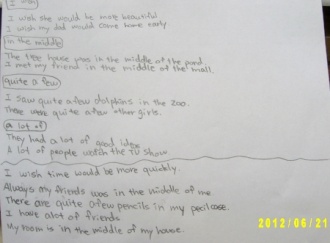 I wish
I wish she would be more beautiful
I wish my dad would come home early
in the middle
The tree house was in the middle of the pond.
I met my friend in the middle of the mall.
quite a few
I saw quite a few dolphins in the zoo.
There were quite a few other girls.
a lot of
They had a lot of good idea
A lot of people watch the TV show
I wish time would be more quickly.
Always my friends was in the middle of me.
There are quite a few pencils in my pecilcase.
I have alot of friends
My room is in the middle of my house.
2012/06/21